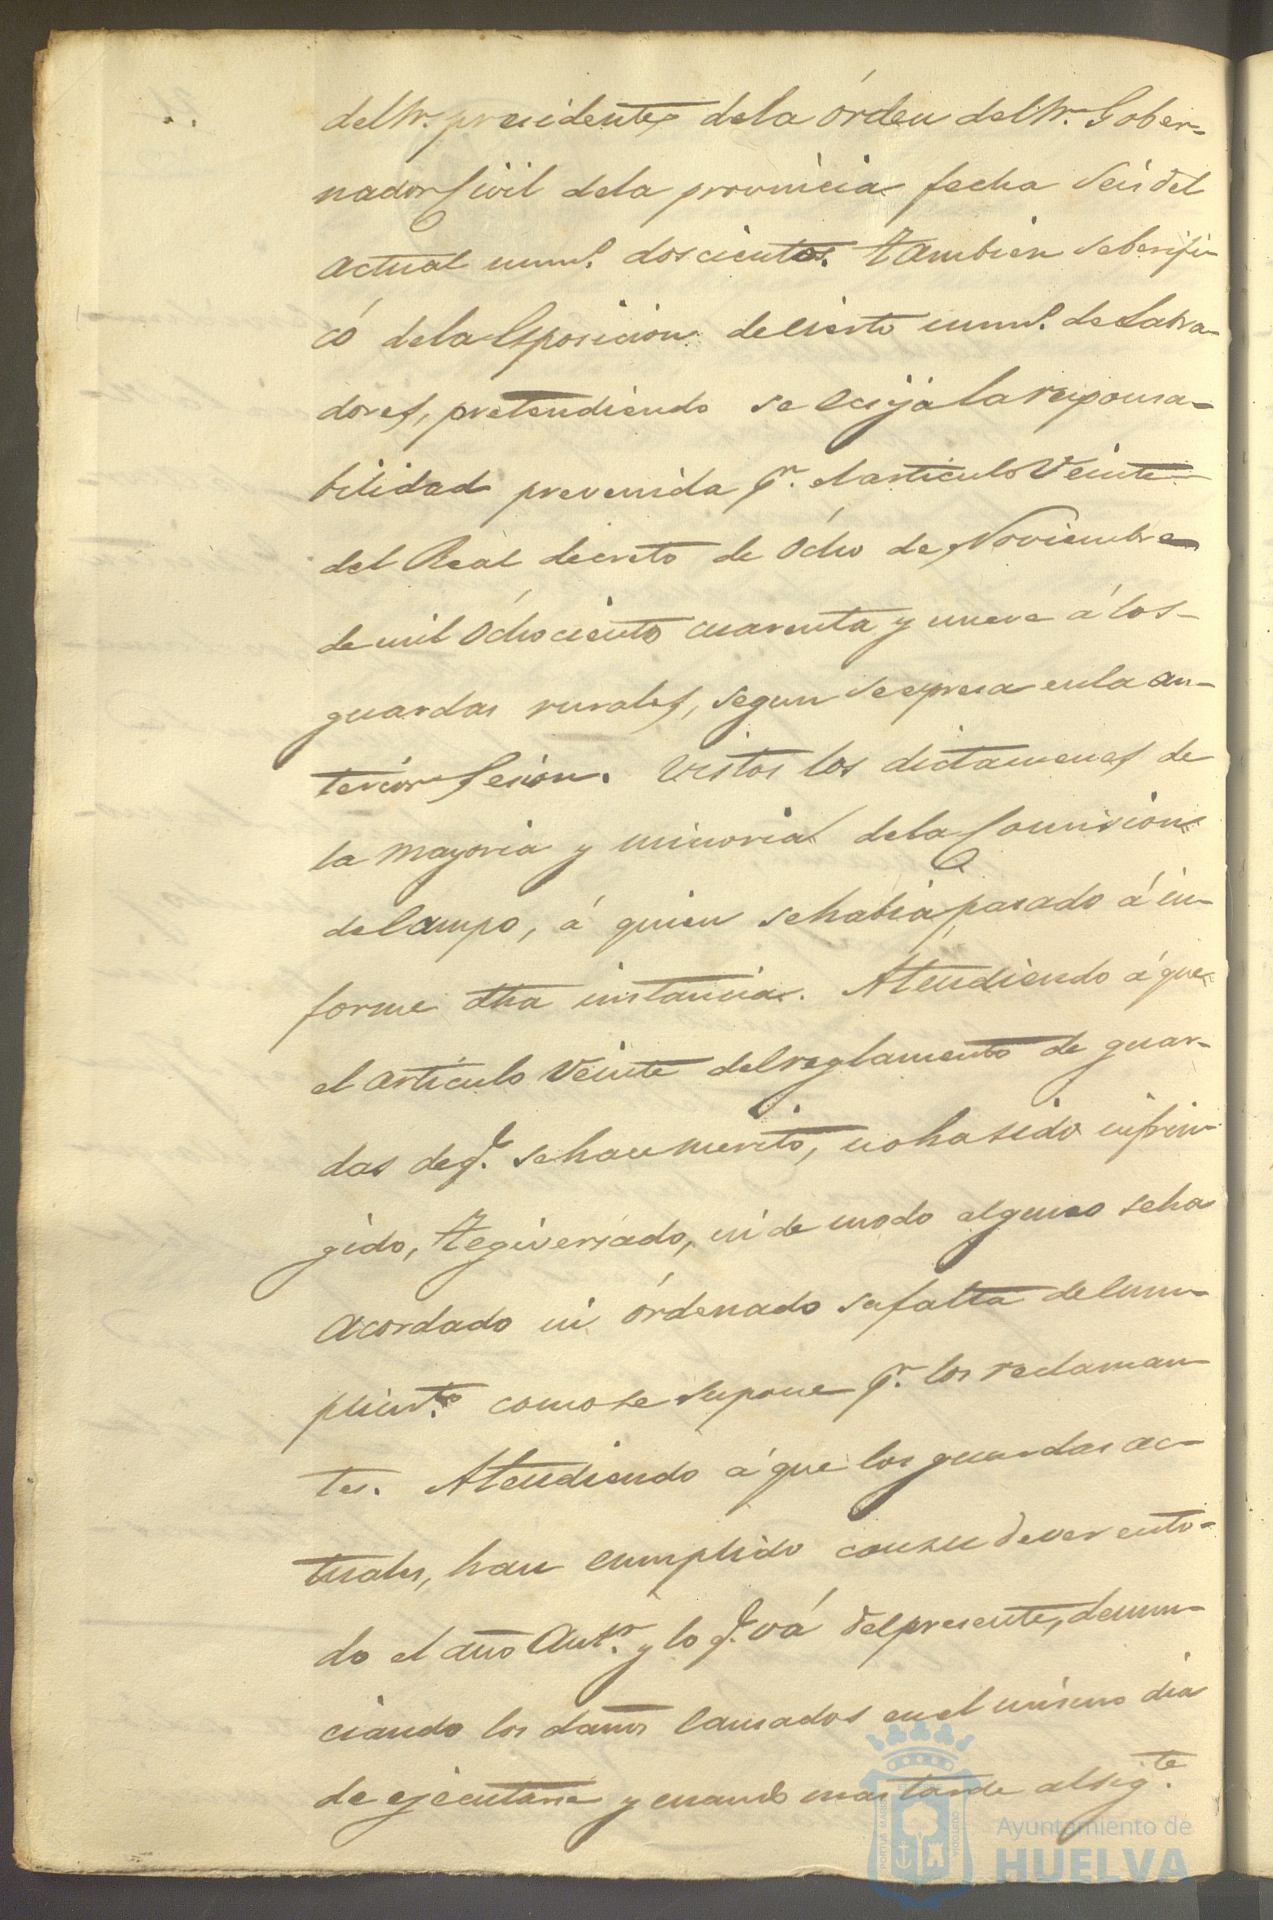 del Sr. presidente, de la órden del Sr. Gober-
nador Civil de la provincia fecha seis del
actual num.º doscientos. Tambien se berifi-
có de la Esposicion de cierto num.º de Labra-
dores, pretendiendo se ecsija la responsa-
bilidad prevenida p.r el articulo Veinte
del Real decreto de Ócho de Noviembre
de mil Óchociento cuarenta y nueve á los
guardas rurales, segun se espresa en la an-
terior Sesion. Vistos los dictamenes de
la mayoria y minoria de la Comision
de Campo, á quien se habia pasado á in-
forme dha instancia. Atendiendo á que
el artículo Veinte del reglamento de guar-
das de q.e se hace merito, no ha sido infrin-
gido, Tegiversado, ni de modo alguno se ha
acordado ni órdenado su falta de cum-
plim.to como se supone p.r los reclaman-
tes. Atendiendo á que los guardas ac-
tuales, han cumplido con su dever en to-
do el año Ant.or y lo q.e vá del presente, denun-
ciando los daños causados en el mismo dia
de ejecutarse y cuando mas tarde al sig.te
Ayuntamiento de
HUELVA